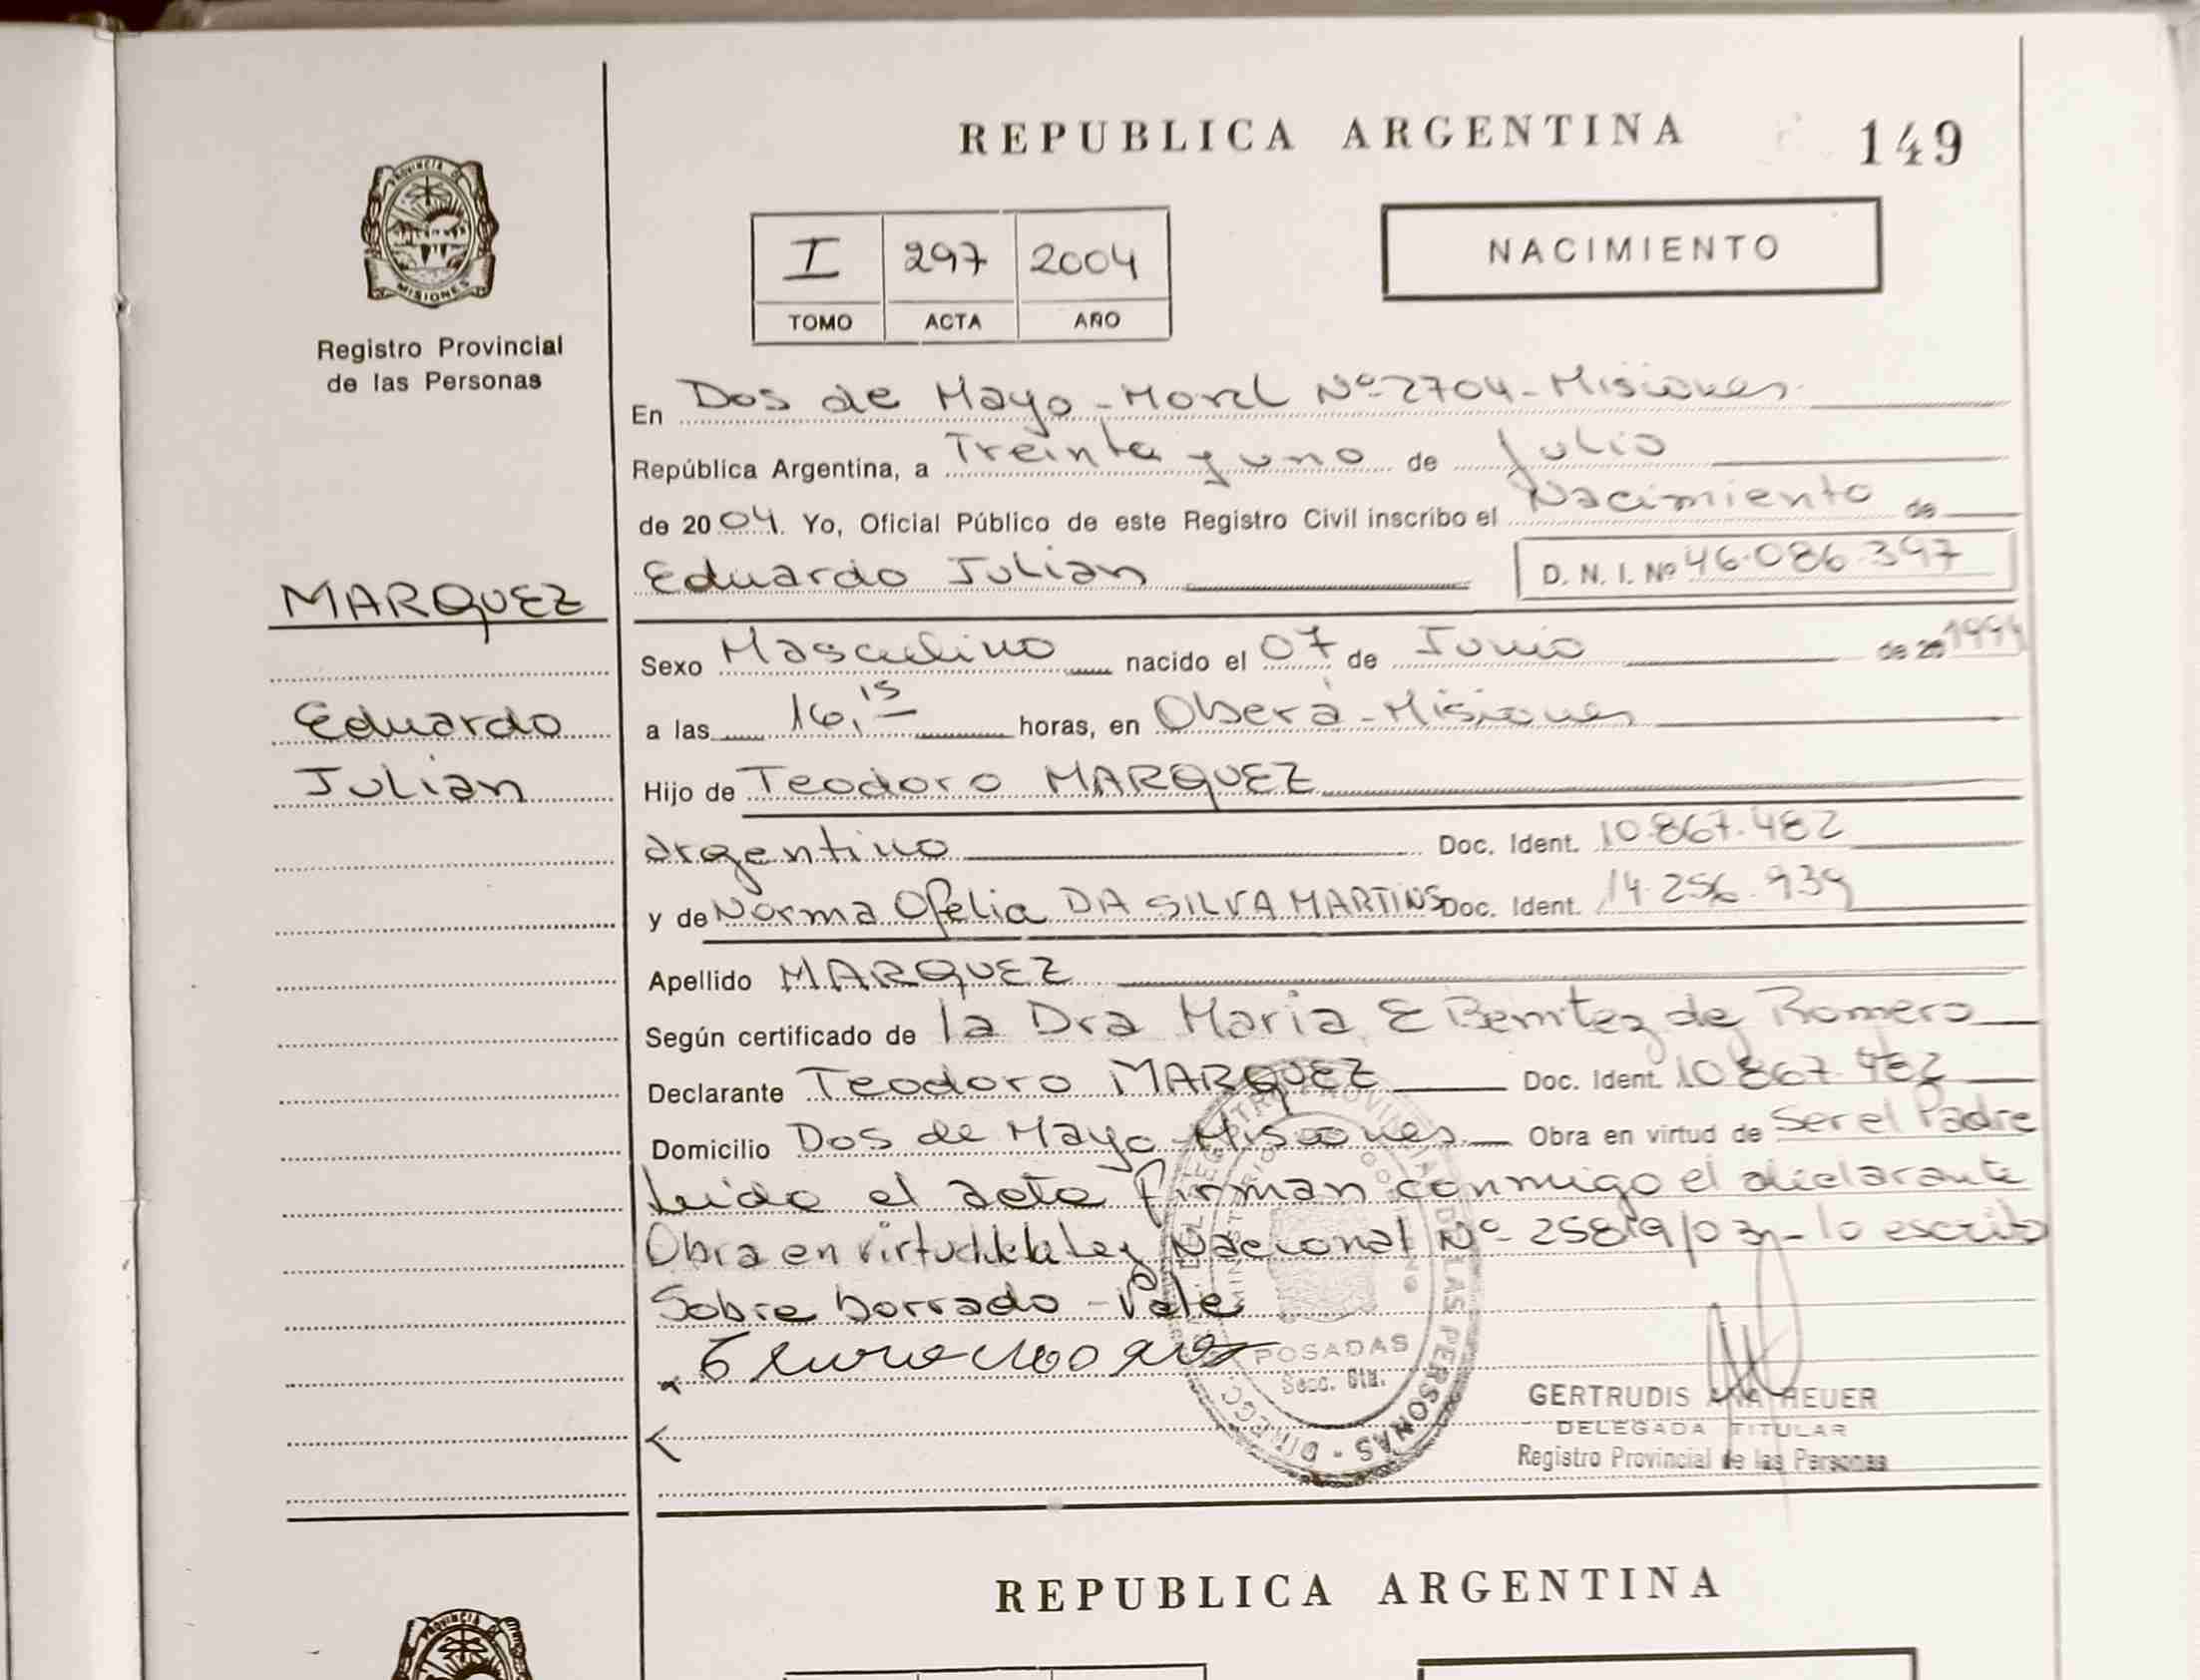 REPUBLICA ARGENTINA 149
PROVINCIA DE
MISIONES
Registro Provincial
de las Personas
I 297 2004
TOMO ACTA AÑO
NACIMIENTO
En Dos de Mayo - Nº 2704 - Misiones
República Argentina, a Treinta y uno de Julio
de 2004. Yo, Oficial Público de este Registro Civil inscribo el Nacimiento de
Eduardo Julian D. N. I. Nº 46.086.397
MARQUEZ
Sexo Masculino nacido el 07 de Junio de 20
a las 16,15 horas, en Oberá - Misiones
Eduardo
Julian
Hijo de Teodoro MARQUEZ
argentino Doc. Ident. 10.867.482
y de Norma Ofelia DA SILVA MARTINS Doc. Ident. 14.256.939
Apellido MARQUEZ
Según certificado de la Dra Maria E Benitez de Romero
Declarante Teodoro MARQUEZ Doc. Ident. 10.867.482
Domicilio Dos de Mayo - Misiones Obra en virtud de Ser el Padre
Leido el acta firman conmigo el declarante
Obra en virtud de la Ley Nacional Nº 25819/03 - lo escrito
Sobre borrado - Vale
POSADAS
GERTRUDIS ANA HEUER
DELEGADA TITULAR
Registro Provincial de las Personas
REPUBLICA ARGENTINA